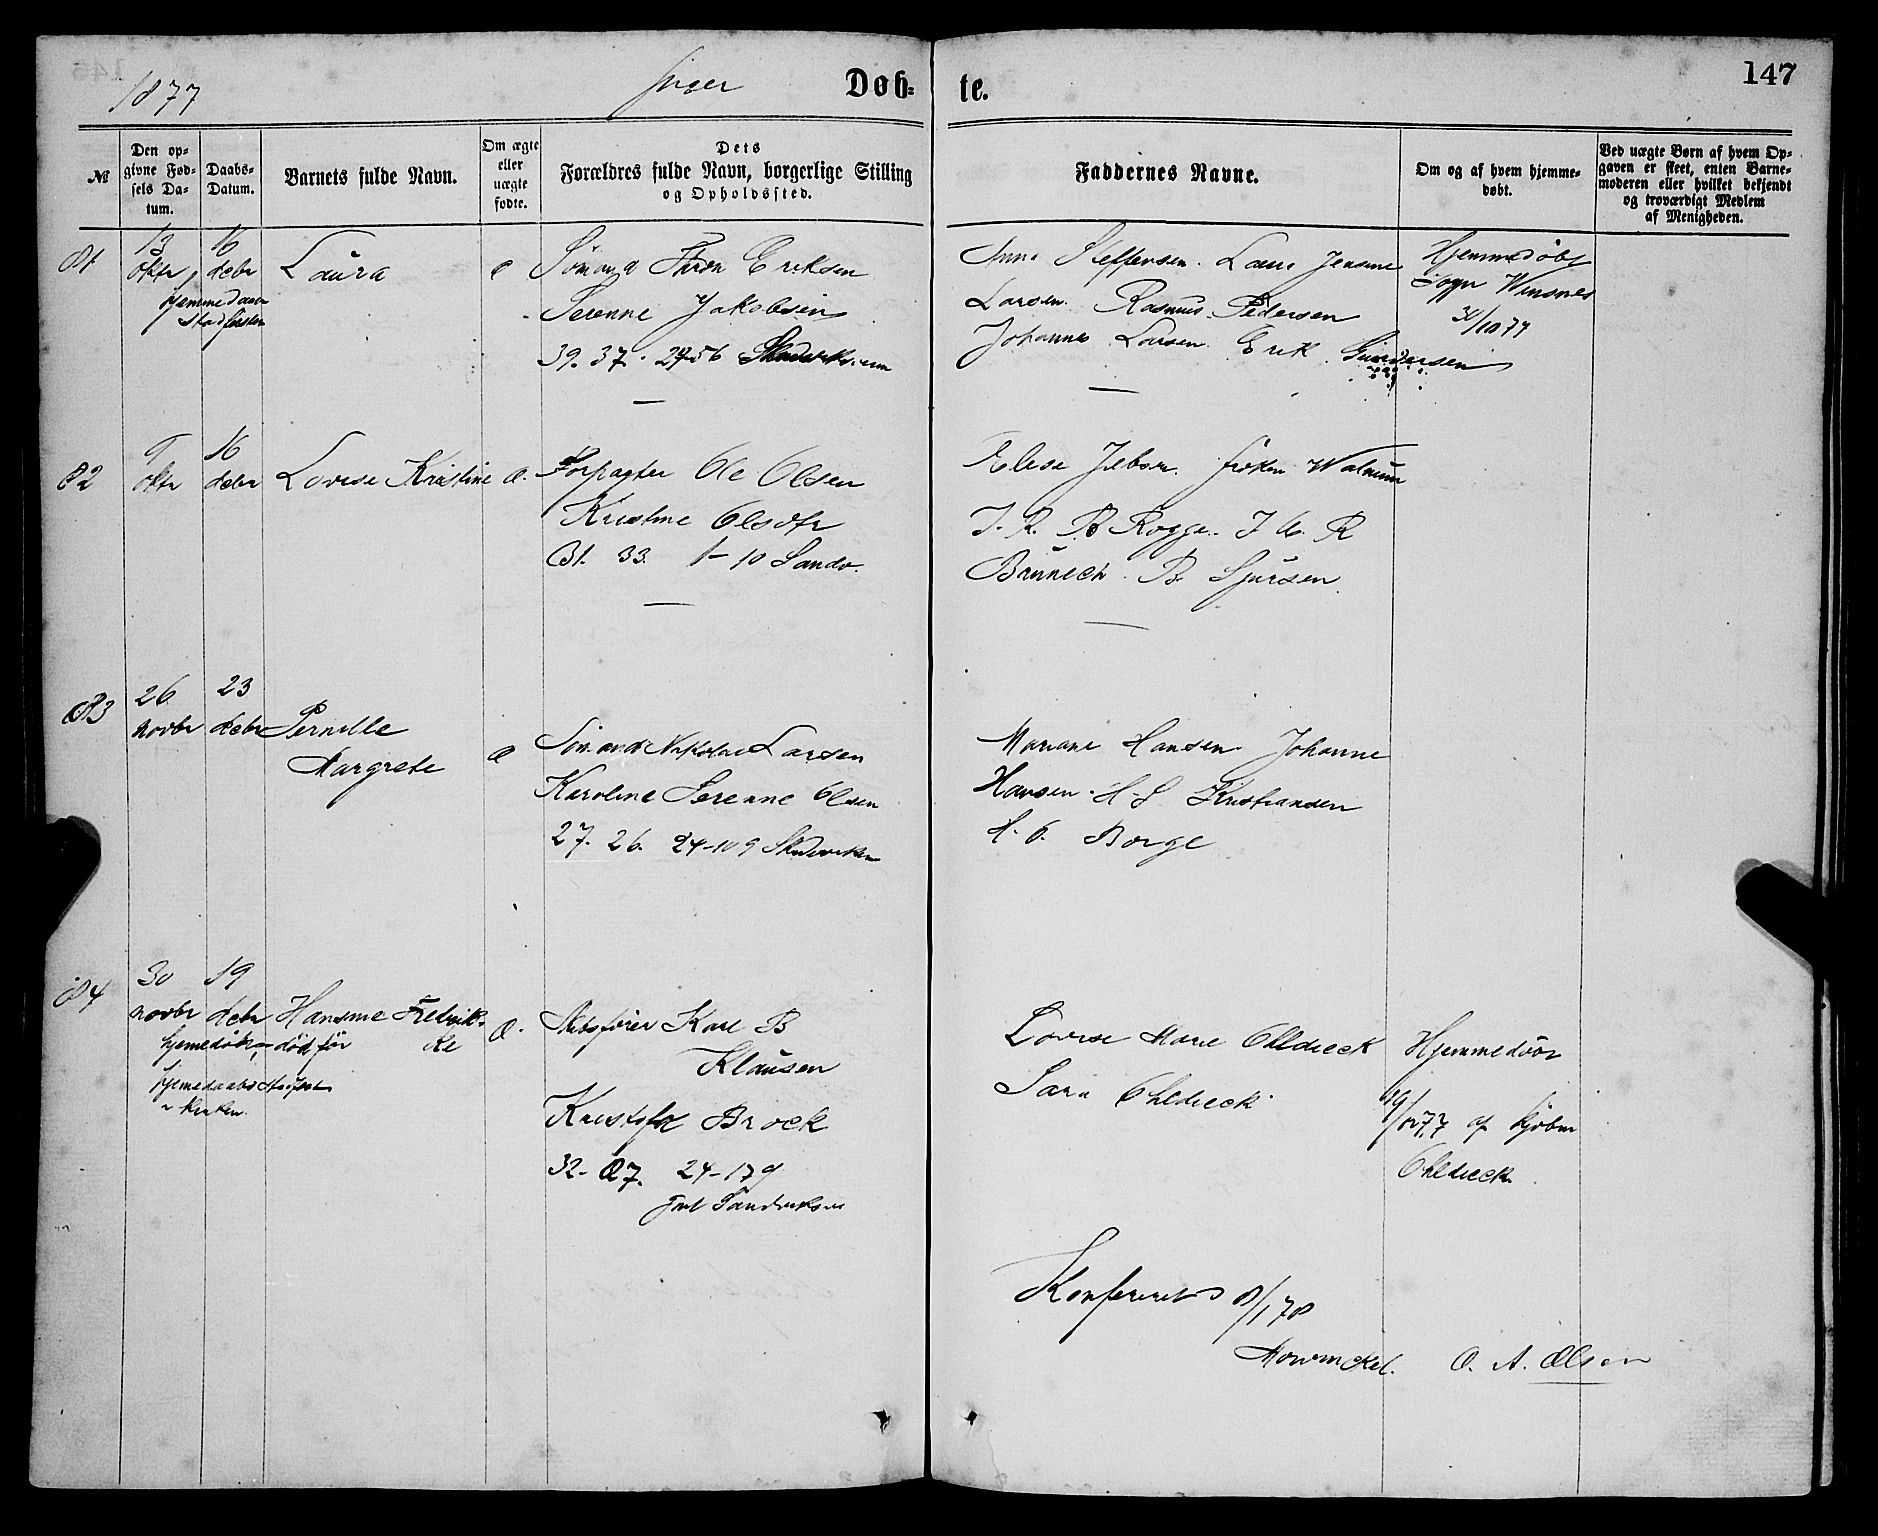 1877
Piger
Døb-
te.
147
№
Den op-
givne Fød-
sels Da-
tum.
Daabs-
Datum.
Barnets fulde Navn.
Om ægte
eller
uægte
fødte.
Dets
Forældres fulde Navn, borgerlige Stilling
og Opholdssted.
Faddernes Navne.
Om og af hvem hjemme-
døbt.
Ved uægte Børn af hvem Op-
gaven er skeet, enten Barne-
moderen eller hvilket bekjendt
og troværdigt Medlem
af Menigheden.
81
13
oktr
16
debr
hjemmedaab
stadfæstet
Laura
e
Sømand Eriksen
Serenne Jakobsen
39. 37.
Anna Steffensen. Jensine
Larsen. Rasmus Pedersen
Johannes Larsen. Erik Gundersen
Hjemmedøbt
82
9
oktr
16
debr
Lovise Kristine
Forpagter Ole Olsen
Kristine Olsdtr
33. Sandv.
Elise Frøken
Rogge.
Brunech. B. Sjursen
83
26
novbr
23
debr
Pernille
Margrete
e
Sømand Nikolai Larsen
Karoline Serenne Olsen
27. 26. 24-109 Skuteviken
Mariane Hansen Johanne
Hansen. Kristiansen
Borge
84
30
novbr
19
debr
hjemedøbt, død før
hjemedaabs stadfæst
i kirken.
Hansine Fredrik-
ke
Karl B
Klausen
Brock
32- 27. 24-179
Lovise Marie Ohldieck
Sara Ohldieck
Hjemmedøbt
19/1277 af
Ohldieck.
Konfereret 8/1 78
Mowinckel. O. A. Olsen